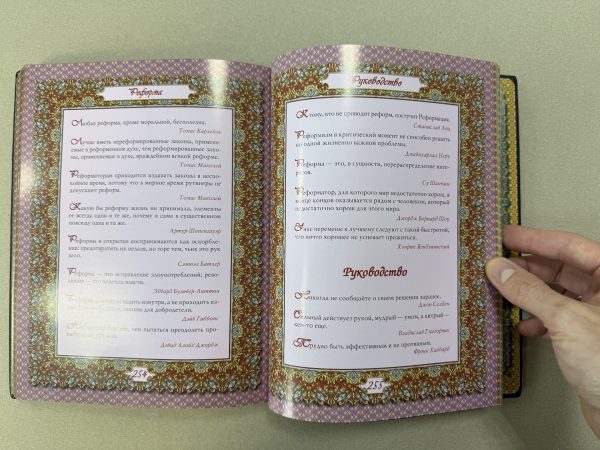 Реформа
Любая реформа, кроме моральной, бесполезна.
Томас Карлейль
Лучше иметь нереформированные законы, применяе-
мые в реформенном духе, чем реформированные зако-
ны, применяемые в духе, враждебном всякой реформе.
Томас Маколей
Реформаторам приходится издавать законы в неспо-
койное время, потому что в мирное время рутинеры не
допускают реформ.
Томас Маколей
Какую бы реформу жизнь ни принимала, элементы
ее всегда одни и те же, почему и сама в существенном
повсюду одна и та же.
Артур Шопенгауэр
Реформы в открытии воспринимаются как оскорбле-
ние: предотвратить их нельзя, но горе тем, чьих это рук
дело.
Сэмюэл Батлер
Реформа — это исправление злоупотреблений; рево-
люция — это переход власти.
Эдвард Бульвер-Литтон
исходить изнутри, а не приходить из-
законы для добродетели.
Гиббонс
чем пытаться преодолеть про-
Дэвид Ллойд Джордж
254
Руководство
К тому, кто не проводит реформ, постучит Реформация.
Станислав Лец
Реформизм в критический момент не способен решить
ни одной жизненно важной проблемы.
Джавахарлал Неру
Реформа — это, в сущности, перераспределение инте-
ресов.
Су Шаочжи
Реформатор, для которого мир недостаточно хорош, в
конце концов оказывается рядом с человеком, который
недостаточно хорош для этого мира.
Джордж Бернард Шоу
У нас перемены к лучшему следуют с такой быстротой,
что ничто хорошее не успевает прижиться.
Хенрик Ягодзинский
Руководство
Никогда не сообщайте о своем решении заранее.
Джон Селден
Сильный действует рукой, мудрый — умом, а хитрый —
чем-то еще.
Владислав Гжегорчик
Трудно быть эффективным и не противным.
Фрэнк Хаббард
255